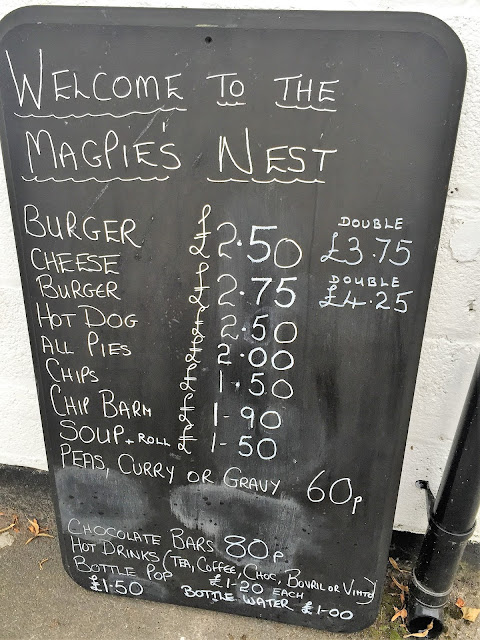 WELCOME TO THE
MAGPIE'S NEST
BURGER £2.50 DOUBLE £3.75
CHEESE
BURGER £2.75 DOUBLE £4.25
HOT DOG £2.50
ALL PIES £2.00
CHIPS £1.50
CHIP BARM £1-90
SOUP + ROLL £1-50
PEAS, CURRY OR GRAVY 60p
CHOCOLATE BARS 80p
HOT DRINKS (TEA, COFFEE, CHOC, BOVRIL OR VIMTO)
BOTTLE POP £1-20 EACH
£1.50 BOTTLE WATER £1-00